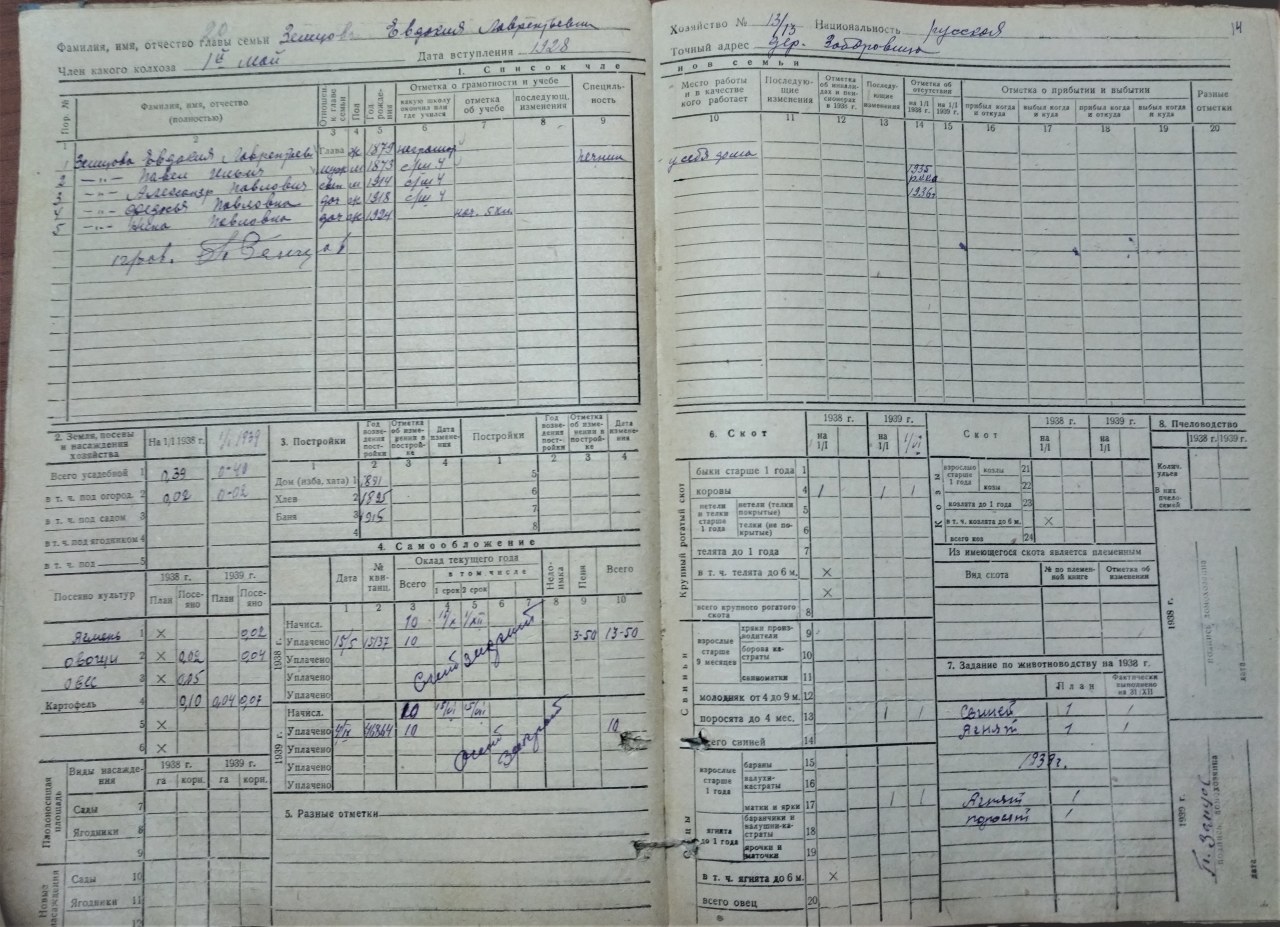 Фамилия, имя, отчество главы семьи Земцова Евдокия Лаврентьевна
Член какого колхоза 1ое Май Дата вступления 1928
1. Список чле
Пор. №
Фамилия, имя, отчество (полностью)
Отношен. к главе семьи
Пол
Год рождения
Отметка о грамотности и учебе
какую школу окончил или где учился
отметка об учебе
последующ. изменения
Специальность
2 3 4 5 6 7 8 9
Земцова Евдокия Лаврентьев Глава ж 1879 неграмот
—„— Павел Ильич муж м 1873 с/ш 4 печник
—„— Александр Павлович сын м 1914 с/ш 4
—„— Павловна доч ж 1918 с/ш 4
—„— Павловна доч ж 1924 нач. 5 кл.
пров.
2. Земли, посевы и насаждения хозяйства
На 1/I 1938 г. 1/I 1939
Всего усадебной 1 0,39 0-40
в т. ч. под огород. 2 0,02 0-02
в т. ч. под садом 3
в т. ч. под ягодником 4
в т. ч. под 5
Посевно культур
1938 г. 1939 г.
План Посеяно План Посеяно
Ячмень 1 × 0,02
овощи 2 × 0,02 0,04
овес 3 × 0,05
Картофель 4 0,10 0,04 0,07
5 ×
6 ×
Плодоносящая площадь
Виды насаждения
1938 г. 1939 г.
га корн. га корн.
Сады 7
Ягодники 8
9
Новые насаждения
Сады 10
Ягодники 11
12
3. Постройки
Год возведения постройки
Отметка об изменении в постройке
Дата изменения
Постройки
Год возведения постройки
Отметка об изменении в постройке
Дата изменения
1 2 3 4 1 2 3 4
Дом (изба, хата) 1 1891 5
Хлев 2 1825 6
Баня 3 1915 7
4 8
4. Самообложение
Дата
№ квитанц.
Оклад текущего года
Всего
в том числе
1 срок 2 срок
Недоимка
Пени
Всего
1 2 3 4 5 6 7 8 9 10
1938 г.
Начисл. 10
Уплачено 15/5 13137 10 3-50 13-50
Уплачено
Уплачено
Уплачено
1939 г.
Начисл. 10
Уплачено 10 10
Уплачено
Уплачено
Уплачено
5. Разные отметки
Хозяйство № 13/13 Национальность русская 14
Точный адрес дер. Заборовица
нов семьи
Место работы и в качестве кого работает
Последующие изменения
Отметка об инвалидах и пенсионерах в 1938 г.
Последующие изменения
Отметка об отсутствии
на 1/I 1938 г. на 1/I 1939 г.
Отметка о прибытии и выбытии
прибыл когда и откуда
выбыл когда и куда
прибыл когда и откуда
выбыл когда и куда
Разные отметки
10 11 12 13 14 15 16 17 18 19 20
у себя дома
1935 РККА
1936г
6. Скот
1938 г. 1939 г.
на 1/I на 1/I 1/VI
Крупный рогатый скот
быки старше 1 года 1
коровы 4 1 1 1
нетели и телки старше 1 года
нетели (телки покрытые) 5
телки (не покрытые) 6
телята до 1 года 7
в т. ч. телята до 6 м. ×
×
всего крупного рогатого скота 8
Свиньи
взрослые старше 9 месяцев
хряки производители 9
борова кастраты 10
свиноматки 11
молодняк от 4 до 9 м. 12
поросята до 4 мес. 13 1 1
всего свиней 14
Овцы
взрослые старше 1 года
бараны 15
валухи-кастраты 16
матки и ярки 17 1 1
ягнята до 1 года
баранчики и валушки-кастраты 18
ярочки и маточки 19
в т. ч. ягнята до 6 м. ×
всего овец 20
Скот
1938 г. 1939 г.
на 1/I на 1/I
Козы
взрослые старше 1 года
козлы 21
козы 22
козлята до 1 года 23
в т. ч. козлята до 6 м. ×
всего коз 24
Из имеющегося скота является племенным
Вид скота
№ по племенной книге
Отметка об изменении
7. Задание по животноводству на 1938 г.
План
Фактически выполнено на 31/XII
Свиней 1 1
Ягнят 1 1
1939г.
Ягнят 1
поросят 1
8. Пчеловодство
1938 г. 1939 г.
Колич. ульев
В них пчелосемей
1938 г.
подпись домохозяина
дата
1939 г.
подпись домохозяина
дата